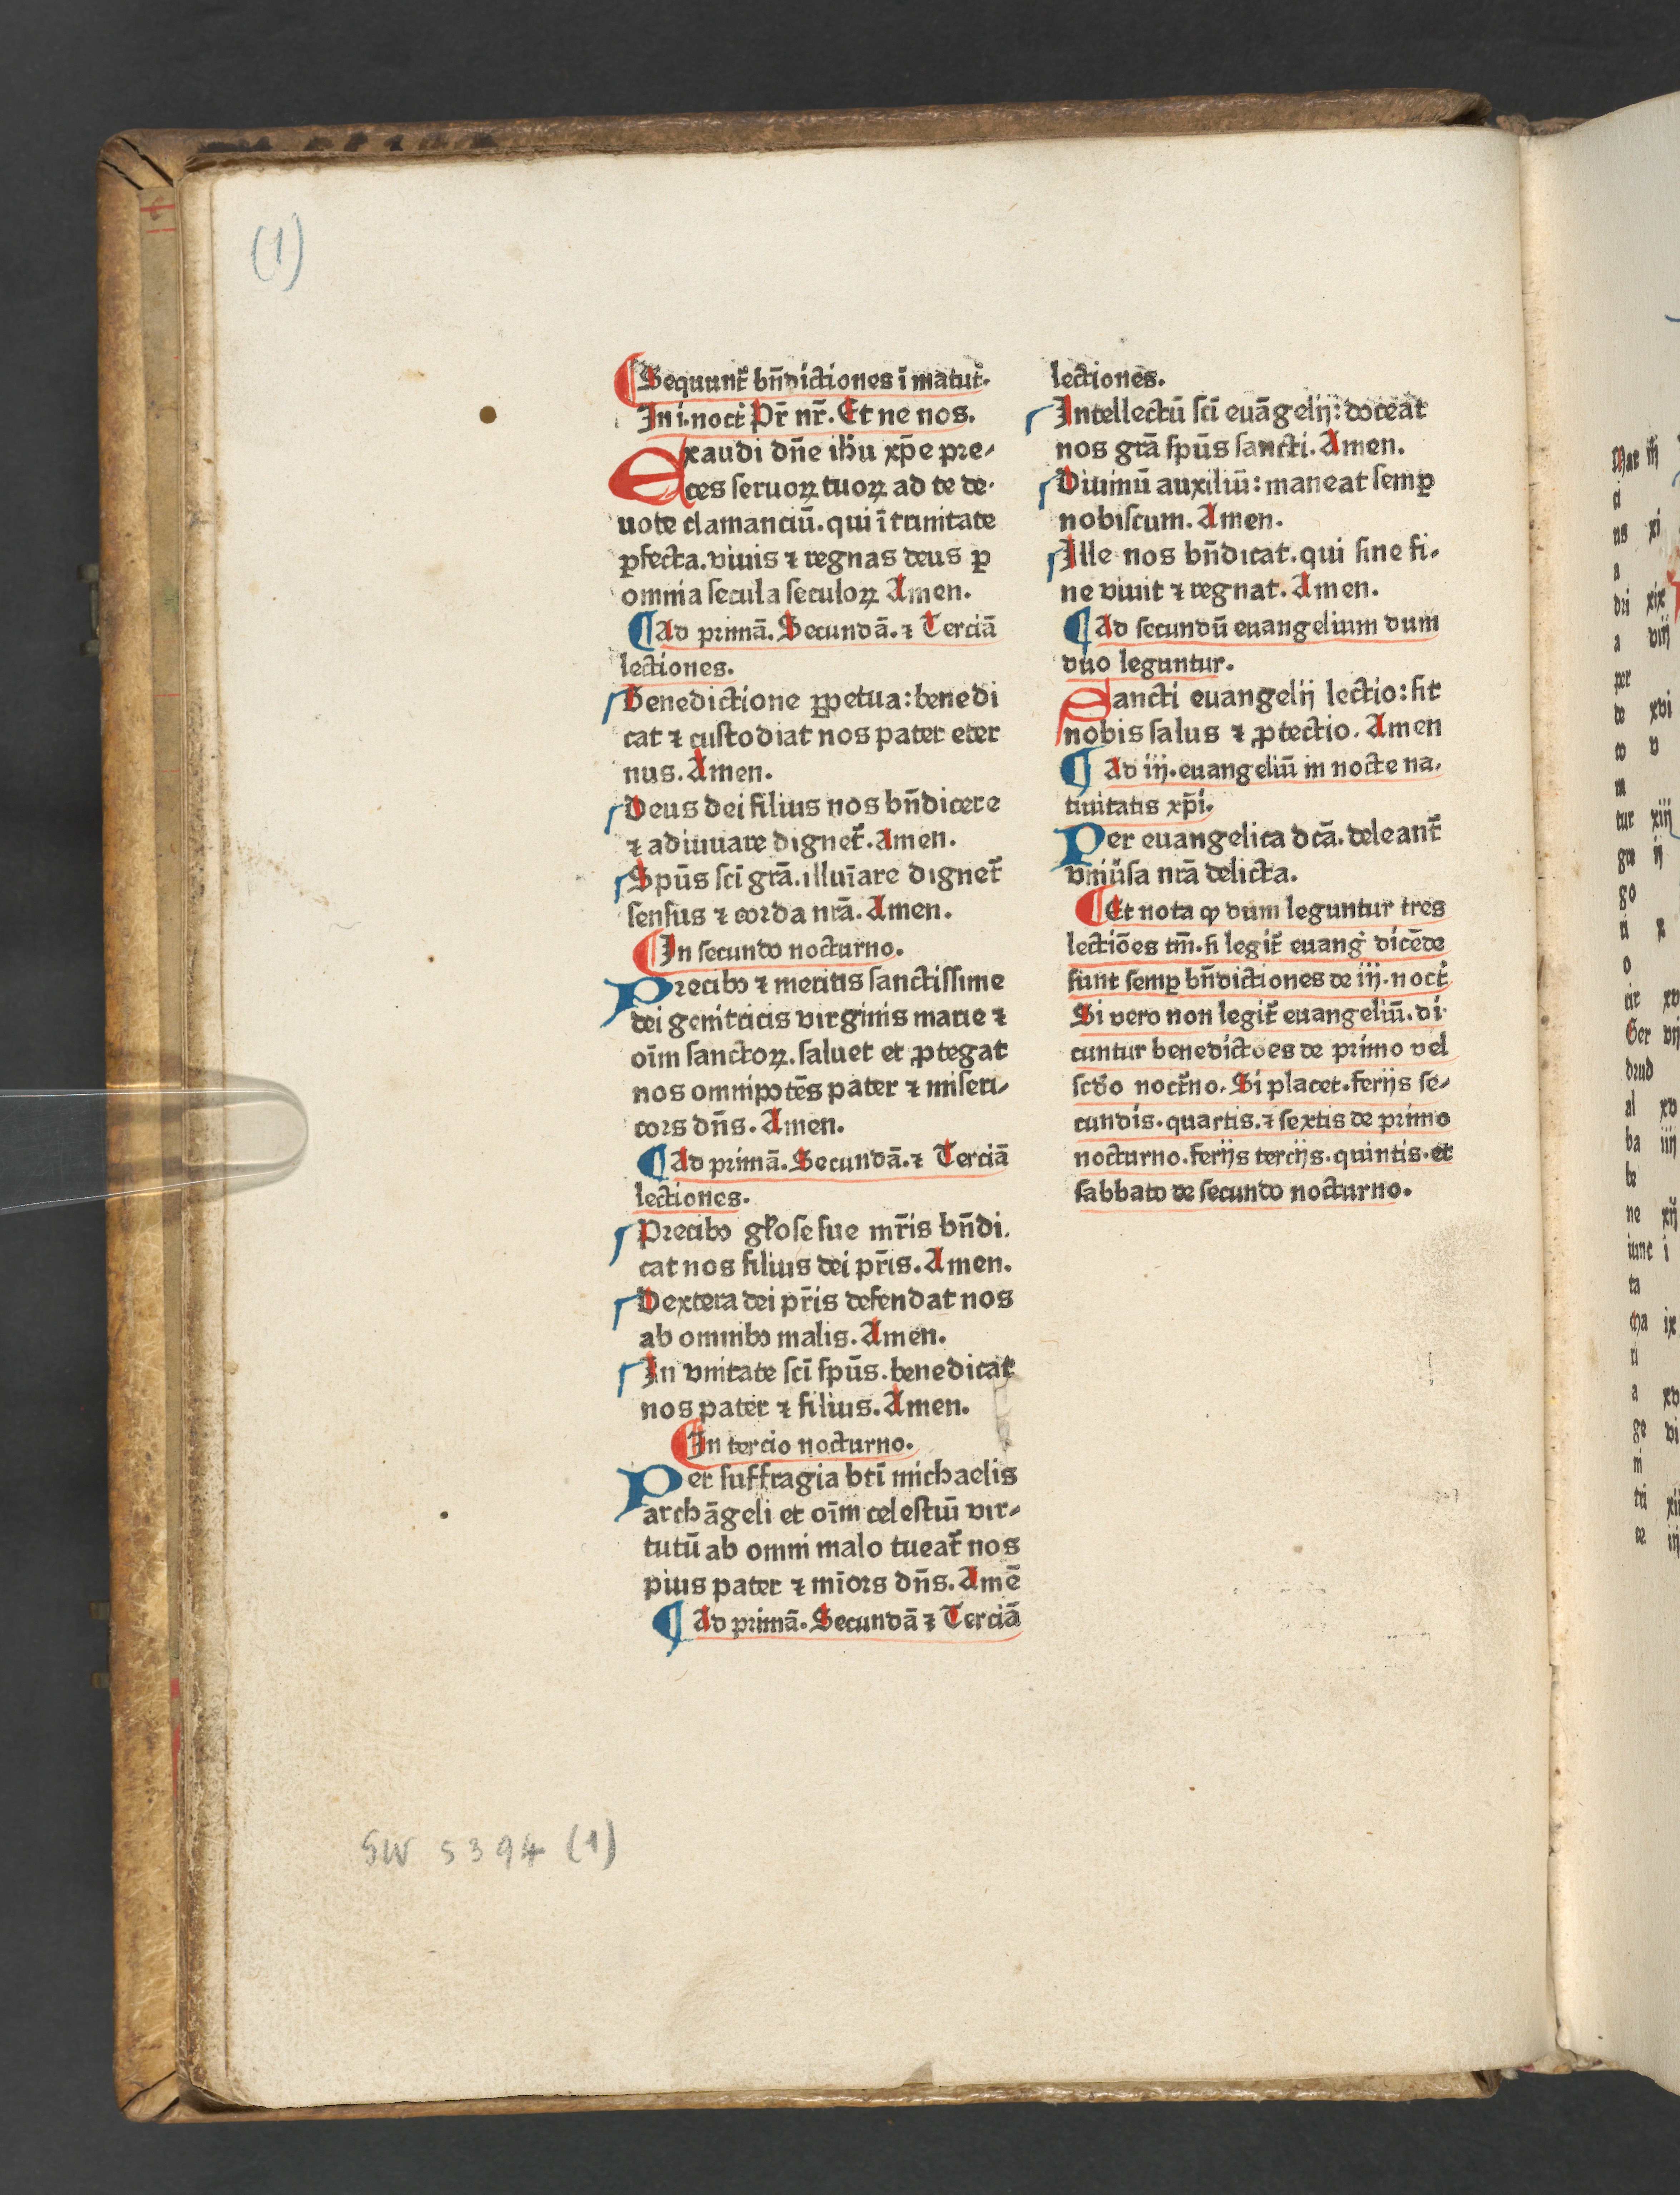 (1)
¶Sequunt᷑ bn̄dictiones ī matut᷑.
In i. noct᷑ Pr̄ nr̄. Et ne nos.
Exaudi dn̄e ih̄u xp̄e pre-
ces seruoꝝ tuoꝝ ad te de-
uote clamanciū. qui ī trinitate
ꝑfecta. viuis ⁊ regnas deus ꝑ
omnia secula seculoꝝ Amen.
¶Ad primā. Secundā. ⁊ Terciā
lectiones.
Benedictione ꝑpetua: benedi
cat ⁊ custodiat nos pater eter
nus. Amen.
Deus dei filius nos bn̄dicere
⁊ adiuuare dignet᷑. Amen.
Spūs sci grā. illuīare dignet᷑
sensus ⁊ corda nrā. Amen.
¶In secundo nocturno.
Precibꝰ ⁊ meritis sanctissime
dei genitricis virginis marie ⁊
oīm sanctoꝝ. saluet et ꝓtegat
nos omnipotēs pater ⁊ miseri-
cors dn̄s. Amen.
¶Ad primā. Secundā. ⁊ Terciā
lectiones.
Precibꝰ gl̄ose sue mr̄is bn̄di-
cat nos filius dei pr̄is. Amen.
Dextera dei pr̄is defendat nos
ab omnibꝰ malis. Amen.
In vnitate sci spūs. benedicat
nos pater ⁊ filius. Amen.
¶In tercio nocturno.
Per suffragia bti michaelis
archāgeli et oīm celestiū vir-
tutū ab omni malo tueat᷑ nos
pius pater ⁊ mīors dn̄s. Amē
¶Ad primā. Secundā ⁊ Terciā
lectiones.
Intellectū sci euāgelij: doceat
nos grā spūs sancti. Amen.
Diuinū auxiliū: maneat semꝑ
nobiscum. Amen.
Ille nos bn̄dicat. qui sine fi-
ne viuit ⁊ regnat. Amen.
¶Ad secundū euangelium dum
duo leguntur.
Sancti euangelij lectio: sit
nobis salus ⁊ ꝓtectio. Amen
¶Ad iij. euangeliū in nocte na-
tiuitatis xp̄i.
Per euangelica dcā. deleant᷑
vniu̾sa nrā delicta.
¶Et nota ꝙ dum leguntur tres
lectiōes tm̄. si legit᷑ euang᷑ dicēde
sunt semꝑ bn̄dictiones de iij. noct᷑
Si vero non legit᷑ euangeliū. di-
cuntur benedictōes de primo vel
scd̄o noct᷑no. Si placet. ferijs se-
cundis. quartis. ⁊ sextis de primo
nocturno. ferijs tercijs. quintis. et
sabbato de secundo nocturno.
GW 5394 (1)